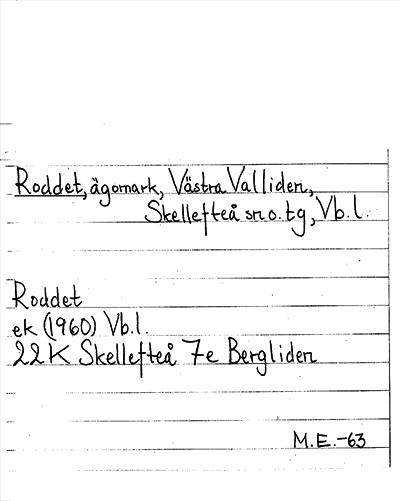 Roddet, ägomark, Västra Valliden,
Skellefteå sn o. tg, Vb. l.
Roddet
ek (1960) Vb. l.
22K Skellefteå 7e Bergliden
M.E.-63